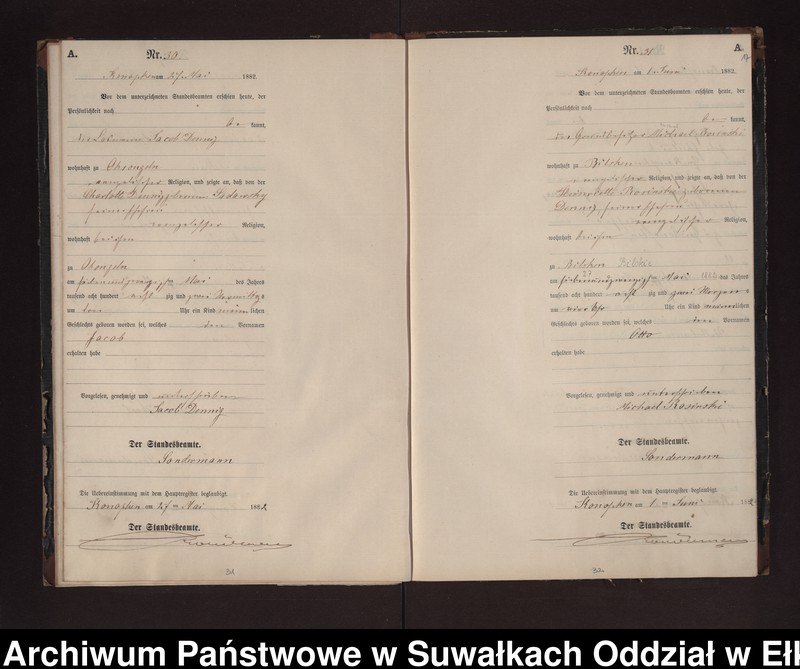 A.
Nr. 30
Konopken am 27ten Mai 1882.
Vor dem unterzeichneten Standesbeamten erschien heute, der
Persönlichkeit nach
be kannt,
der Losmann Jacob
wohnhaft zu
evangelischer Religion, und zeigte an, daß von der
Charlotte geborenen
seiner Ehefrau
evangelischer Religion,
wohnhaft bei ihm
zu
am siebenundzwanzigsten Mai des Jahres
tausend acht hundert acht zig und zwei Vormittags
um Uhr ein Kind männlichen
Geschlechts geboren worden sei, welches den Vornamen
Jacob
erhalten habe
Vorgelesen, genehmigt und unterschrieben
Jacob
Der Standesbeamte.
Sondermann
Die Uebereinstimmung mit dem Hauptregister beglaubigt.
Konopken am 27ten Mai 1882.
Der Standesbeamte.
Sondermann
31
Nr. 31
A.
Konopken am 1. Juni 1882.
Vor dem unterzeichneten Standesbeamten erschien heute, der
Persönlichkeit nach
be kannt,
der Grundbesitzer Michael
wohnhaft zu Bilsken
evangelischer Religion, und zeigte an, daß von der
Henriette geborenen
seiner Ehefrau
evangelischer Religion,
wohnhaft bei ihm
zu Bilsken
am siebenundzwanzigsten Mai des Jahres
tausend acht hundert acht zig und zwei Morgens
um vier Uhr Uhr ein Kind männlichen
Geschlechts geboren worden sei, welches den Vornamen
Otto
erhalten habe
Vorgelesen, genehmigt und unterschrieben
Michael
Der Standesbeamte.
Sondermann
Die Uebereinstimmung mit dem Hauptregister beglaubigt.
Konopken am 1ten Juni 1882
Der Standesbeamte.
Sondermann
32
Archiwum Państwowe w Suwałkach Oddział w Ełk